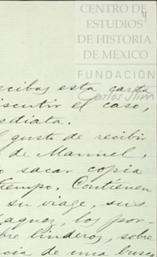 CENTRO DE
ESTUDIOS
DE HISTORIA
DE MEXICO
FUNDACIÓN
Carlos Slim
recibas esta carta
discutir el caso,
mediata.
gusto de recibir
de Manuel,
sacar copia
tiempo. Contienen
su viage, sus
aguas, los por-
bre linderos, sobre
cia de una buena